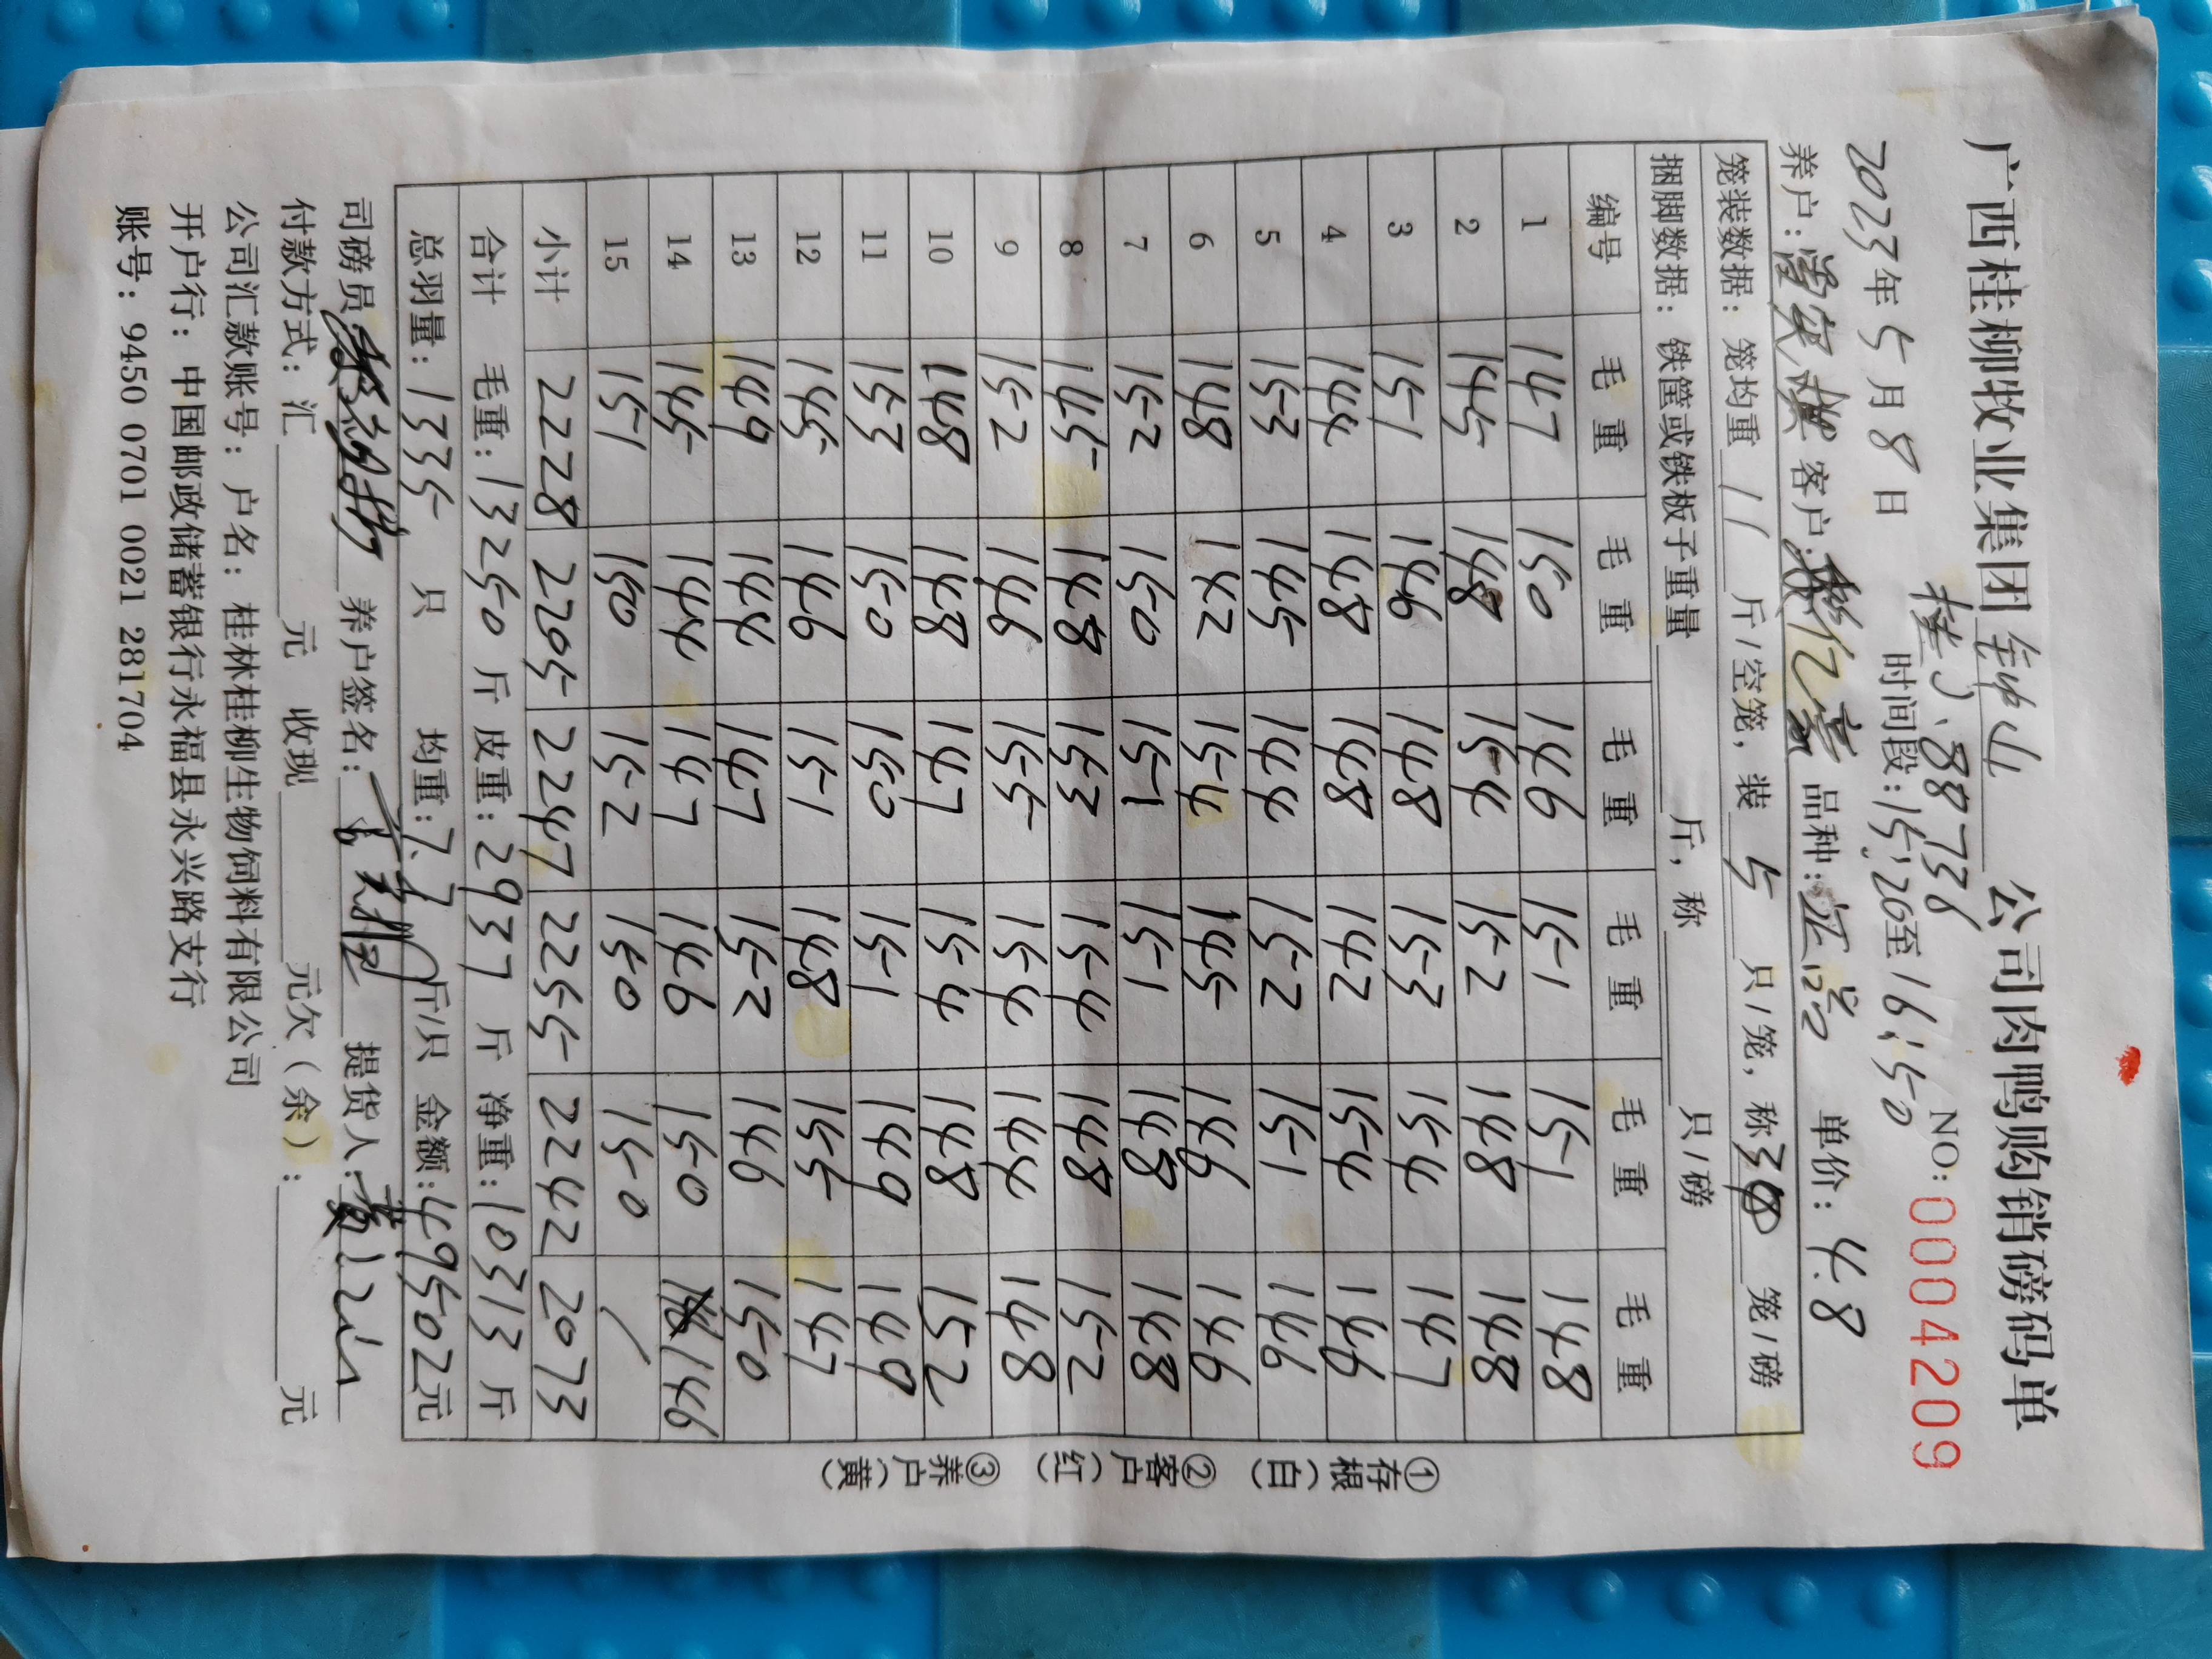 广西桂柳牧业集团钟山公司肉鸭购销磅码单
桂J、88738 NO:0004209
2023年5月8日 时间段:15:20至16:50
养户: 客户: 亿豪 品种: 单价:4.8
笼装数据: 笼均重 11 斤/空笼, 装 5 只/笼, 称3 笼/磅
捆脚数据: 铁筐或铁板子重量 斤, 称 只/磅
编号 毛重 毛重 毛重 毛重 毛重 毛重
1 147 150 146 151 151 148
2 145 148 154 152 148 148
3 151 146 148 153 154 147
4 144 148 148 142 154 146
5 153 145 144 152 151 146
6 148 142 154 145 146 146
7 152 150 151 151 148 148
8 145 148 153 154 148 152
9 152 146 155 154 144 148
10 148 148 147 154 148 152
11 153 150 150 151 149 149
12 145 146 151 148 155 147
13 149 144 147 152 146 150
14 145 144 147 146 150 146
15 151 150 152 150 150 /
小计 2228 2205 2247 2255 2242 2073
合计 毛重:13250斤 皮重:2937斤 净重:10313斤
总羽量:1335只 均重:7.7斤/只 金额:49502元
司磅员: 养户签名: 提货人:
付款方式: 汇 元 收现 元欠(余): 元
公司汇款账号: 户名: 桂林桂柳生物饲料有限公司
开户行: 中国邮政储蓄银行永福县永兴路支行
账号: 9450 0701 0021 281704
①存根(白) ②客户(红) ③养户(黄)